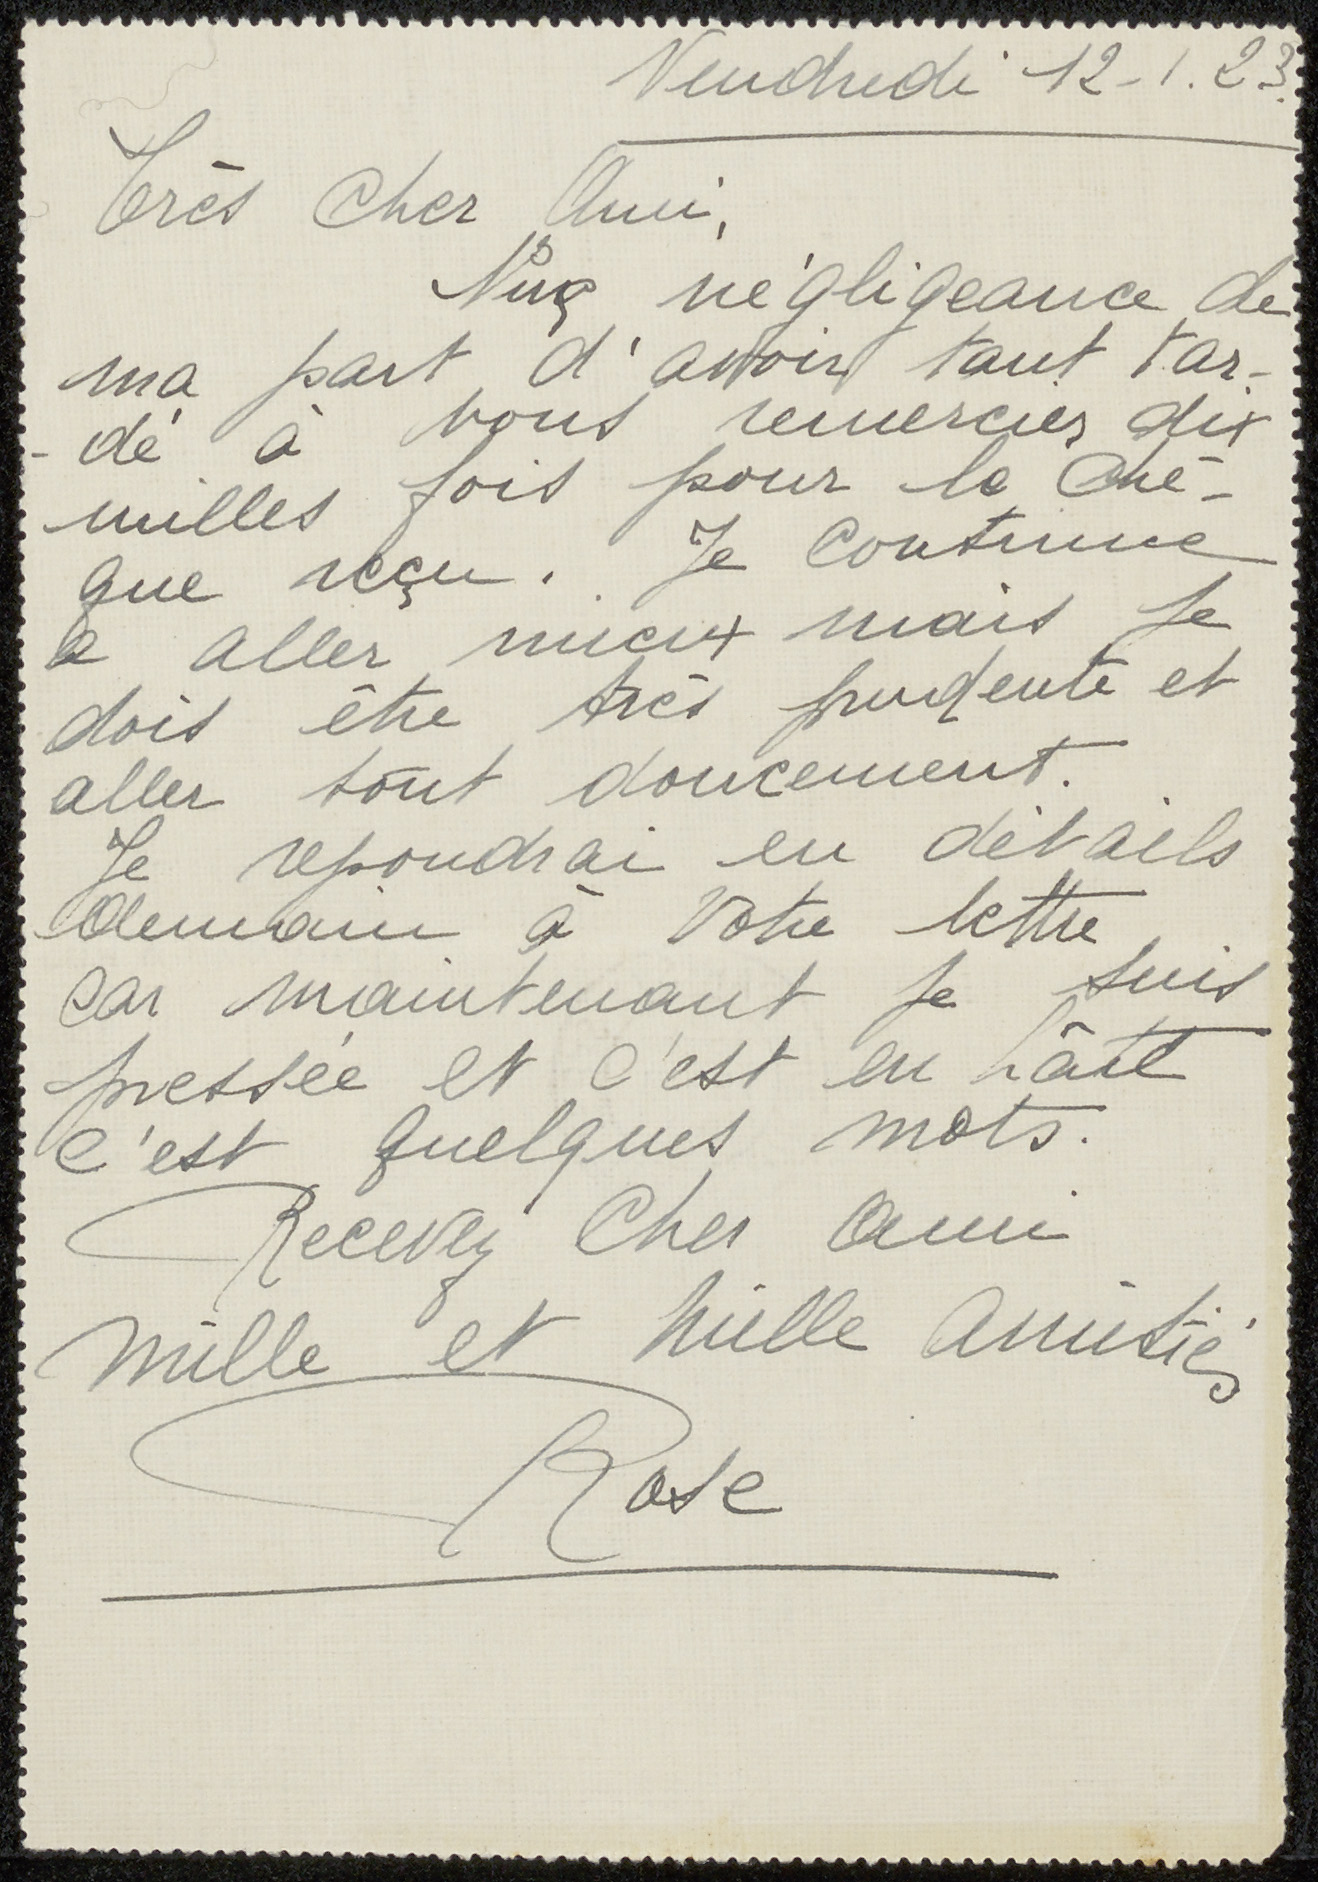 Vendredi 12-1.23.
Très Cher Ami,
négligeance de
ma part d'avoir tant tar-
-dé à vous remercier dix
milles fois pour le Chè-
que reçu. Je continue
a aller mieux mais je
dois être très prudente et
aller tout doucement.
Je repondrai en détails
demain à Votre lettre
car maintenant je suis
pressée et c'est en hâte
c'est quelques mots.
Recevez Cher Ami
mille et mille Amitiés
Rose